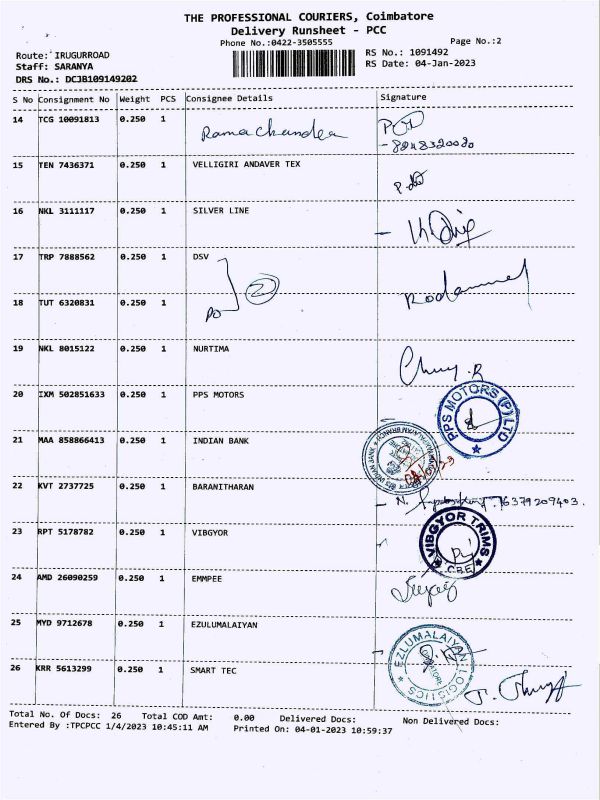 THE PROFESSIONAL COURIERS, Coimbatore
Delivery Runsheet - PCC
Phone No.:0422-3505555
Page No.:2
Route: IRUGURROAD
RS No.: 1091492
Staff: SARANYA
RS Date: 04-Jan-2023
DRS No.: DCJB109149202
S No Consignment No Weight PCS Consignee Details Signature
14 TCG 10091813 0.250 1 Ramachandra
- 8248320020
15 TEN 7436371 0.250 1 VELLIGIRI ANDAVER TEX
16 NKL 3111117 0.250 1 SILVER LINE
17 TRP 7888562 0.250 1 DSV
2
18 TUT 6320831 0.250 1
19 NKL 8015122 0.250 1 NURTIMA
20 IXM 502851633 0.250 1 PPS MOTORS
PPS MOTORS (P) LTD
21 MAA 858866413 0.250 1 INDIAN BANK
22 KVT 2737725 0.250 1 BARANITHARAN
- N. 76379209403.
23 RPT 5178782 0.250 1 VIBGYOR
VIBGYOR TRIMS
CBE
24 AMD 26090259 0.250 1 EMMPEE
25 MYD 9712678 0.250 1 EZULUMALAIYAN
EZLUMALAIYAN LOGISTICS
26 KRR 5613299 0.250 1 SMART TEC
Total No. Of Docs: 26 Total COD Amt: 0.00 Delivered Docs: Non Delivered Docs:
Entered By :TPCPCC 1/4/2023 10:45:11 AM Printed On: 04-01-2023 10:59:37